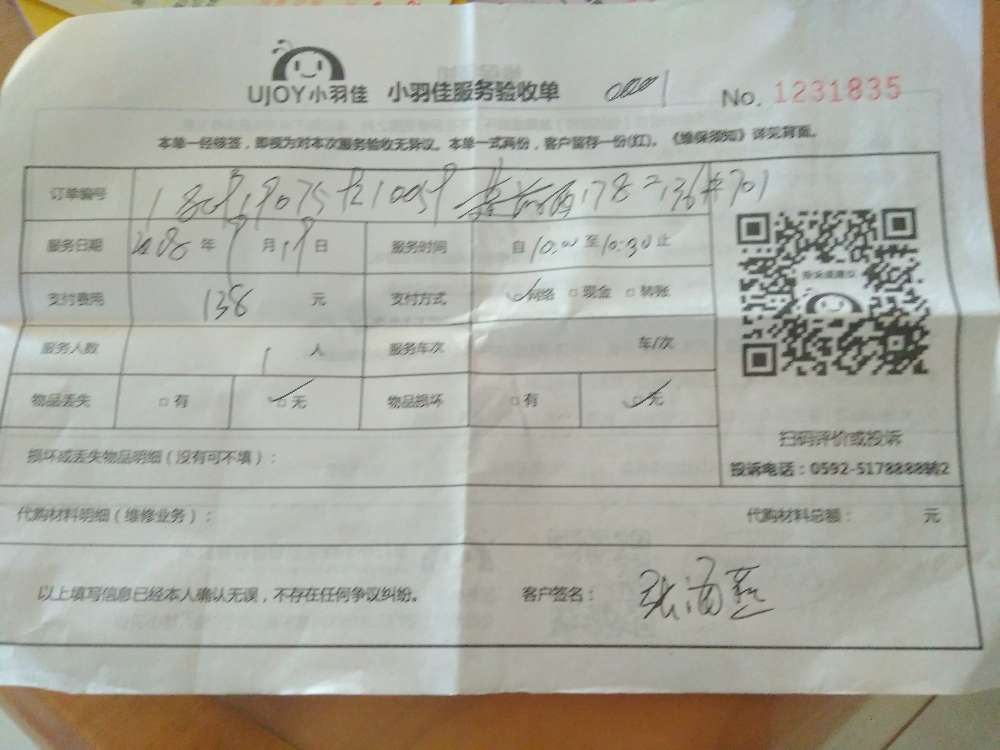 UJOY小羽佳 小羽佳服务验收单 No. 1231835
本单一经签签，即视为对本次服务验收无异议。本单一式两份，客户留存一份(红)。《维保须知》详见背面。
订单编号 #701
服务日期 年 9 月 19 日 服务时间 自 10:00 至 10:30 止
支付费用 138 元 支付方式 ☑网络 □现金 □转账
服务人数 1 人 服务车次 车/次
物品丢失 □有 ☑无 物品损坏 □有 ☑无
扫码评价或投诉
损坏或丢失物品明细（没有可不填）：
投诉电话：0592-5178888转2
代购材料明细（维修业务）： 代购材料总额： 元
以上填写信息已经本人确认无误，不存在任何争议纠纷。 客户签名：